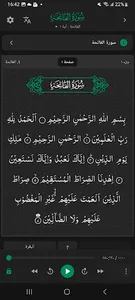 16:42
22%
سُورَةُ الفَاتِحَةِ
سورة الفاتحة
صفحة ١
سُورَةُ الفَاتِحَةِ
بِسْمِ اللَّهِ الرَّحْمَٰنِ الرَّحِيمِ ۝ الْحَمْدُ لِلَّهِ
رَبِّ الْعَالَمِينَ ۝ الرَّحْمَٰنِ الرَّحِيمِ ۝ مَالِكِ
يَوْمِ الدِّينِ ۝ إِيَّاكَ نَعْبُدُ وَإِيَّاكَ نَسْتَعِينُ
۝ اهْدِنَا الصِّرَاطَ الْمُسْتَقِيمَ ۝ صِرَاطَ
الَّذِينَ أَنْعَمْتَ عَلَيْهِمْ غَيْرِ الْمَغْضُوبِ
عَلَيْهِمْ وَلَا الضَّالِّينَ ۝
البقرة